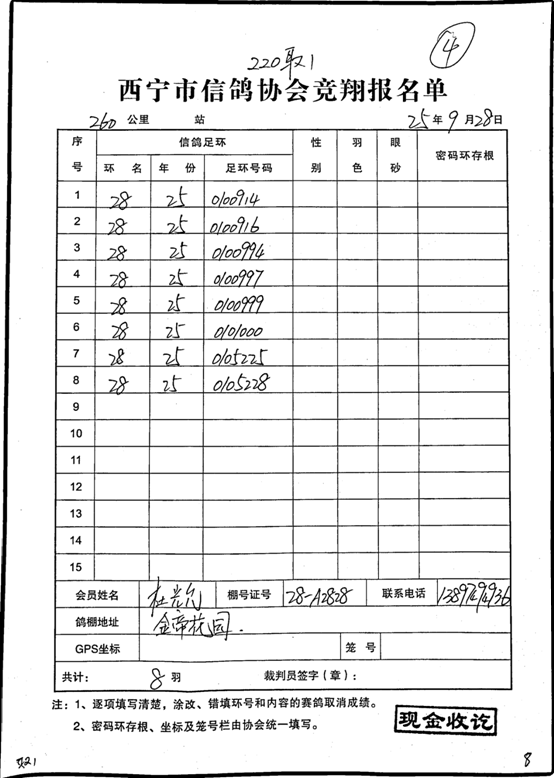 ④
220取1
西宁市信鸽协会竞翔报名单
260 公里 站 25年9月28日
序号 信鸽足环 性别 羽色 眼砂 密码环存根
环名 年份 足环号码
1 28 25 0100914
2 28 25 0100916
3 28 25 0100994
4 28 25 0100997
5 28 25 0100999
6 28 25 0101000
7 28 25 0105225
8 28 25 0105228
9
10
11
12
13
14
15
会员姓名 杜 棚号证号 28-A2828 联系电话
鸽棚地址 金帝花园.
GPS坐标 笼号
共计: 8羽 裁判员签字(章):
注:1、逐项填写清楚,涂改、错填环号和内容的赛鸽取消成绩。
2、密码环存根、坐标及笼号栏由协会统一填写。
现金收讫
8